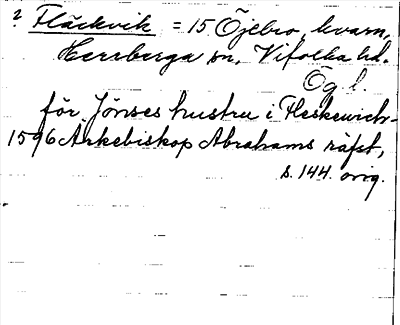 ? Fläckvik = 15 Öjebro, kvarn,
Herrberga sn, Vifolka hd.
Ög l.
för. Jönses hustru i Fleskewich
1596 Ärkebiskop Abrahams räfst,
s. 144. orig.